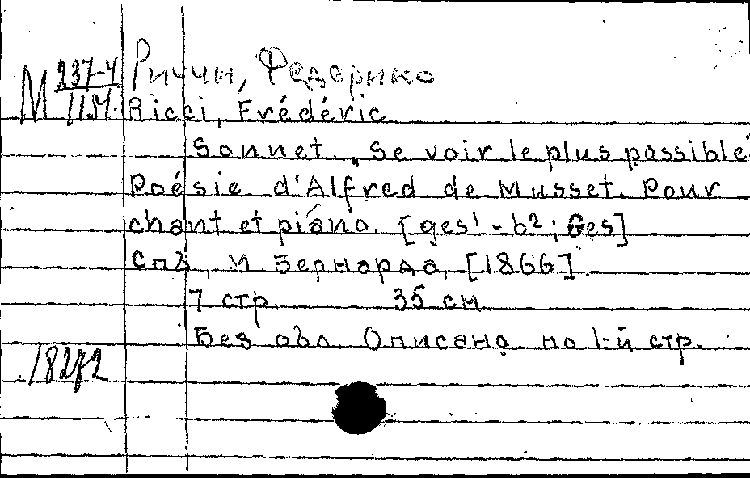 М 237-4
Риччи, Федерико
Ricci, Frédéric
Sonnet „Se voir le plus passible"
Poésie d'Alfred de Musset. Pour
chant et piano. [ges¹ - b²; Ges]
Спб, М Бернарда, [1866].
7 стр. 35 см
Без обл. Описана по 1-й стр.